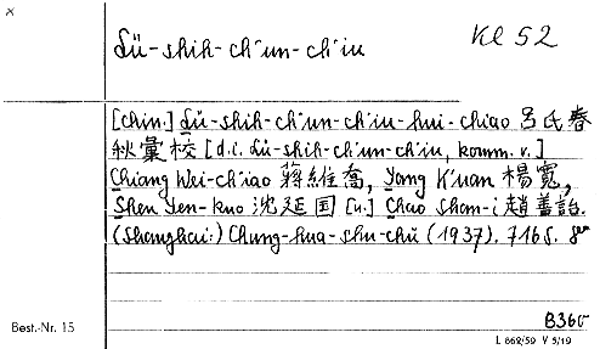 x
Lü-shih-ch'un-ch'iu
Kl 52
[Chin.] Lü-shih-ch'un-ch'iu-hui-chiao 呂氏春
秋彙校 [d.i. Lü-shih-ch'un-ch'iu, komm. v.]
Chiang Wei-ch'iao 蔣維喬, Yang K'uan 楊寬,
Shen Yen-kuo 沈延国 [u.] Chao Shan-i 趙善詒.
(Shanghai:) Chung-hua-shu-chü (1937). 716 S. 8°
B360
Best.-Nr. 15
L 662/59 V 5/19